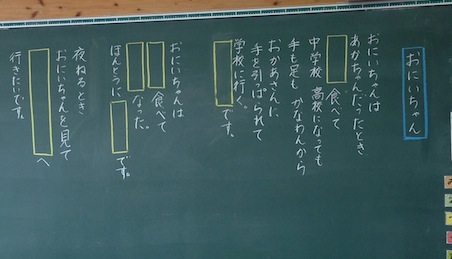 おにいちゃん
おにいちゃんは
あかちゃんだったとき
食べて
中学校 高校になっても
手も足も かなわんから
おかあさんに
手を引っぱられて
学校に行く。
です。
おにいちゃんは
食べて
なった。
ほんとうに
です。
夜ねるとき
おにいちゃんを見て
へ
行きたいです。